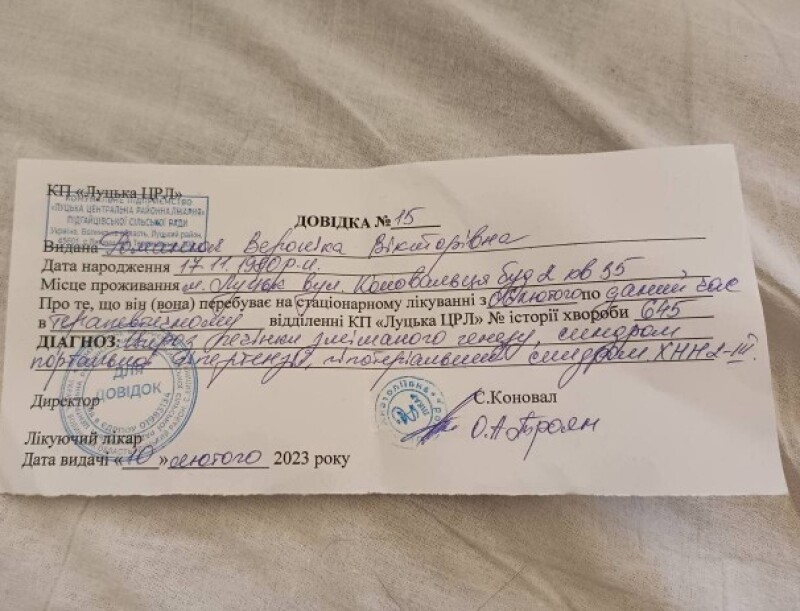 КП «Луцька ЦРЛ»
КОМУНАЛЬНЕ ПІДПРИЄМСТВО
«ЛУЦЬКА ЦЕНТРАЛЬНА РАЙОННА ЛІКАРНЯ»
ПІДГАЙЦІВСЬКОЇ СІЛЬСЬКОЇ РАДИ
Україна, Волинська область, Луцький район,
ДОВІДКА № 15
Видана Вероніка Вікторівна
Дата народження 17.11.1980 р.н.
Місце проживання м. Луцьк вул. Коновальця буд 2 кв 35
Про те, що він (вона) перебуває на стаціонарному лікуванні з лютого по даний час
в терапевтичному відділенні КП «Луцька ЦРЛ» № історії хвороби 645
ДІАГНОЗ: Цироз печінки змішаного генезу, синдром
портальної гіпертензії, синдром. ХНН 2-III.
ДЛЯ
ДОВІДОК
Директор С.Коновал
Лікуючий лікар О.А.Троян
Дата видачі «10» лютого 2023 року